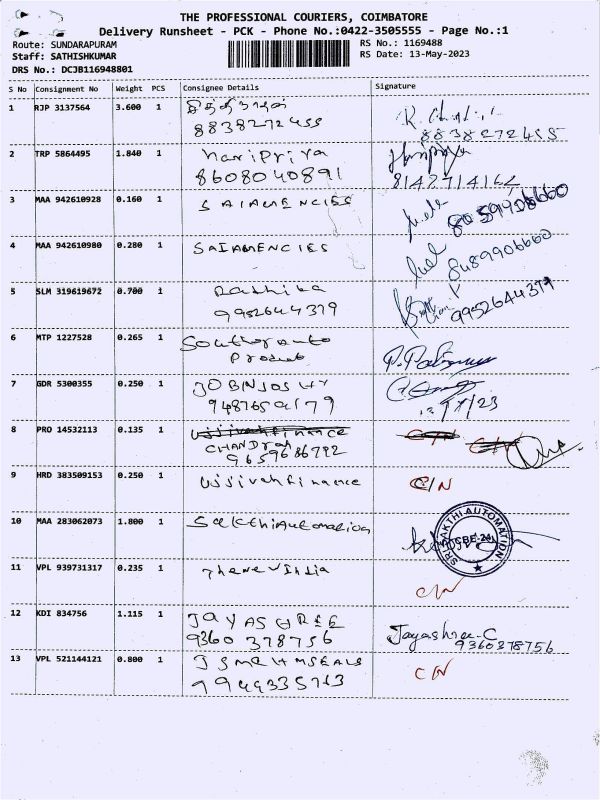 THE PROFESSIONAL COURIERS, COIMBATORE
Delivery Runsheet - PCK - Phone No.:0422-3505555 - Page No.:1
Route: SUNDARAPURAM
RS No.: 1169488
Staff: SATHISHKUMAR
RS Date: 13-May-2023
DRS No.: DCJB116948801
S No Consignment No Weight PCS Consignee Details Signature
1 RJP 3137564 3.600 1
8838272455
8838272455
2 TRP 5864495 1.840 1 haripriya
8608040891
8142714164
3 MAA 942610928 0.160 1 SAIAGENCIES
4 MAA 942610980 0.280 1 SAIAGENCIES
8489906660
5 SLM 319619672 0.700 1 Rathika
9952644379 9952644379
6 MTP 1227528 0.265 1 Southern auto
Product
7 GDR 5300355 0.250 1 JOBINJOSHY
8 PRO 14532113 0.135 1
CHANDra
9659686792
9 HRD 383509153 0.250 1 Ujjivan finance C/N
10 MAA 283062073 1.800 1 SakthiAutomation
SRI SAKTHI AUTOMATION
CBE-21
11 VPL 939731317 0.235 1 C/N
12 KDI 834756 1.115 1 JAYASHREE Jayashree.C
9360378756 9360378756
13 VPL 521144121 0.800 1 CN